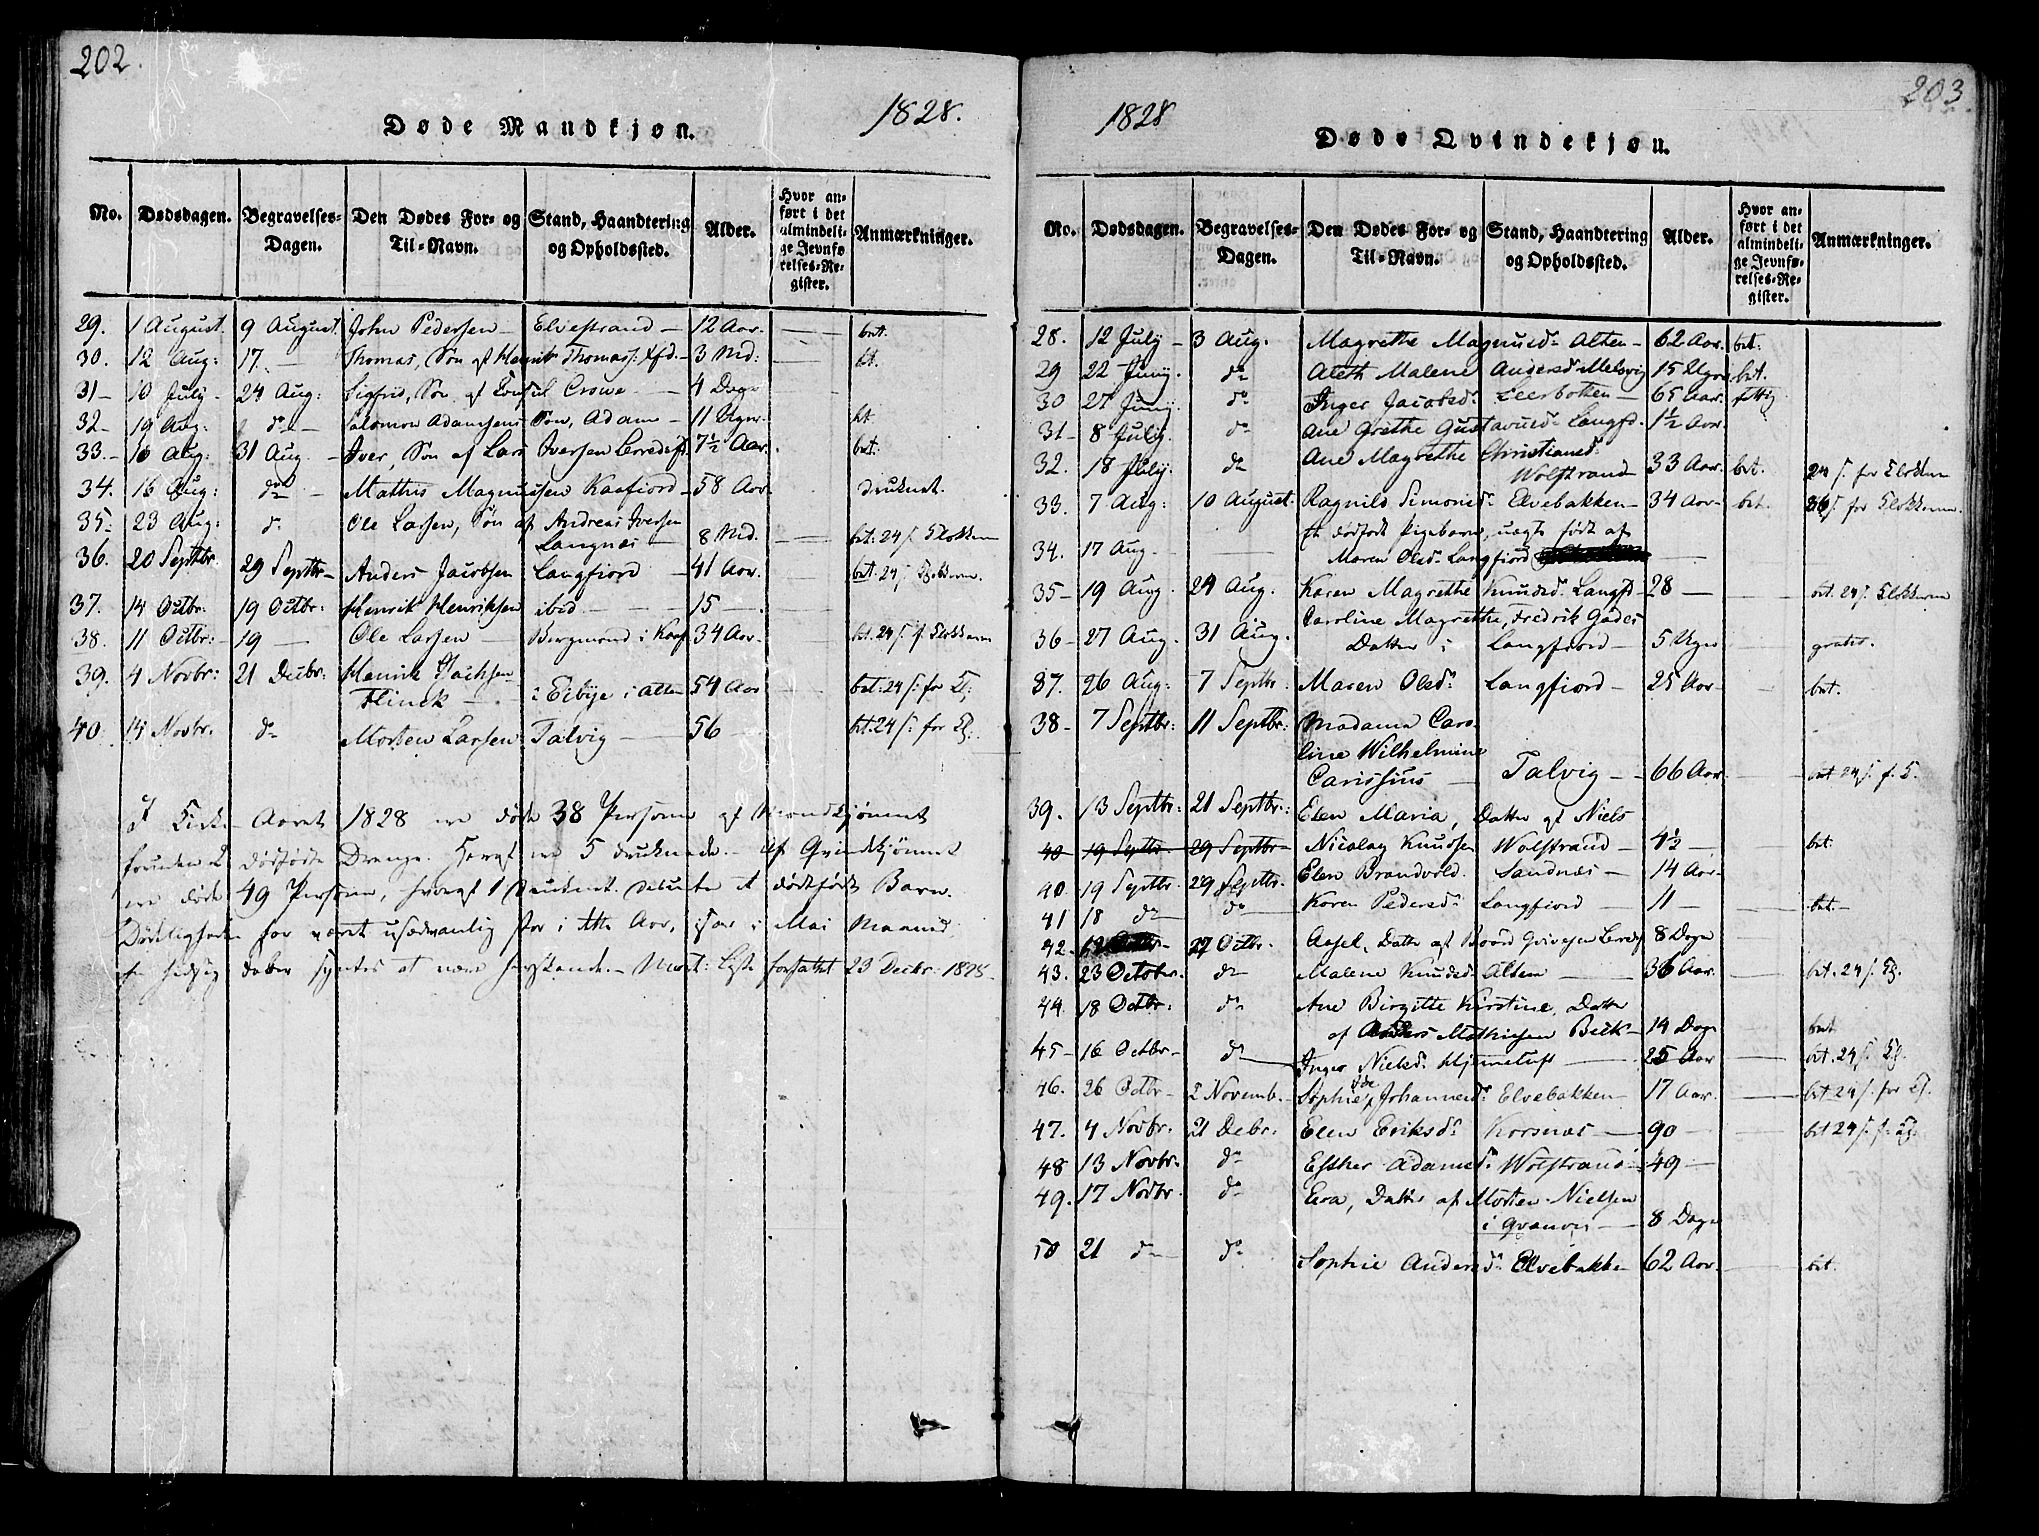 202.
Døde Mandkjøn.
1828.
No. Dødsdagen. Begravelses-Dagen. Den Dødes For- og Til-Navn. Stand, Haandtering og Opholdssted. Alder. Hvor anført i det almindelige Jevnførelses-Register. Anmærkninger.
29. 1 August. 9 August. John Pedersen - Elvestrand - 12 Aar. — bet.
30. 12 Aug: 17 — Thomas, Søn af Henrik Thomass: - 3 Md: — bt.
31 - 10 July - 24 Aug: Sigfrid, Søn af Consul Crowe - 4 Dage
32 - 19 Aug: do - Salomon Adamsens Søn, Adam - 11 Uger - bt.
33. - 16 Aug: 31 Aug. - Iver, Søn af Lars Iversen - 7½ Aar. bet.
34. 16 Aug: do - Mathis Magnussen Kaafiord - 58 Aar - druknet.
35 - 23 Aug: do Ole Larsen, Søn af Andreas Iversen
Langnæs - 8 Md. — bet. 24 s. Klokkeren
36. 20 Septbr. 29 Septbr - Anders Jacobsen Langfiord - 41 Aar. bet. 24 s. Klokkeren.
37. 14 Octbr: 19 Octbr: Henrik Henriksen ibid - 15 —
38. 11 Octbr: - 19 — Ole Larsen - Bergmand i Kaaf 34 Aar - bt. 24 s. f. Klokkeren
39. 4 Novbr: 21 Decbr: Henrik Isachsen
Flinck - i Elvebye i Alten 54 Aar bet: 24 s: for Kl:
40. 14 Novbr. do Morten Larsen Talvig — 56 — bt. 24 s: for Kl:
I Kirke-Aaret 1828 ere døde 38 Personer af Mandkjønnet
foruden 2 dødfødte Drenge. Heraf ere 5 druknede. - Af Qvindkjønnet
ere døde 49 Personer, hvoraf 1 druknet desuden et dødfødt Barn.
Dødeligheden har været usædvanlig stor i dette Aar, især i Mai Maaned
en hidsig Feber syntes at være herskende. - Mort: Liste forfattet 23 Decbr: 1828.
203.
1828
Døde Qvindekjøn.
No. Dødsdagen. Begravelses-Dagen. Den Dødes For- og Til-Navn. Stand, Haandtering og Opholdssted. Alder. Hvor anført i det almindelige Jevnførelses-Register. Anmærkninger.
28. 12 July - 3 Aug. Magrethe Magnusd. Alten - 62 Aar. bet.
29 22 Juny. do Aleth Malene Andersd. Melsvig 15 Uger bet.
30 27 Juny. do Inger Jacobsd. Leerbotten - 65 Aar. fattig
31 - 8 July. do Ane Grethe Gustavusd. Langfd. - 1½ Aar.
32. 18 July. do Ane Magrethe Christiansd.
Wolstrand 33 Aar. bet. 24 s. for Klokkeren
33. 7 Aug: 10 August. Ragnild Simonsd. Elvebakken - 34 Aar - bet. 36 s. for Klokkeren.
34. 17 Aug. — Et dødfødt Pigebarn, uægte født af
Maren Olsd. Langfiord —
35 - 19 Aug. 24 Aug. Karen Magrethe Knudsd. Langfd - 28 — bet. 24 s. Klokkeren
36 - 27 Aug. 31 Aug. Caroline Magrethe, Fredrik Gades
Datter i Langfiord - 5 Uger gratis.
37. 26 Aug: 7 Septbr. Maren Olsd. Langfiord - 25 Aar - bet.
38 - 7 Septbr: 11 Septbr: Madame Caro-
line Wilhelmine
Carissius - Talvig - 66 Aar. bet 24 s. f. K.
39. 13 Septbr: 21 Septbr: Elen Maria, Datter af Niels
40 19 Septbr. 29 Septbr Nicolay Knudsen Wolstrand - 4½ - bet.
40. 19 Septbr. 29 Septbr. Elen Brandvold. Sandnæs - 14 Aar -
41 18 do do Karen Pedersd. Langfiord - 11 - bet. -
42. 27 Octbr. Aasel, Datter af 8 Dage
43. 23 October. do Malene Knudsd. Alten — 36 Aar. bet. 24 s. Kl.
44. 18 Octbr: do Ane Birgitte Kirstine, Datter
af Anders Mathisen Beck - 14 Dage bet
45 - 16 Octbr - do Inger Nielsd. Hjemeluft — 25 Aar bet. 24 s. Kl.
46. 26 Octbr - 2 Novemb. Sophie Johannesd. Elvebakken - 17 Aar. bet 24 s. for Kl.
47. 4 Novbr. 21 Debr: Elen Eriksd. Korsnæs - 90 - bet 24 s. f. Kl.
48 13 Novbr. do Esther Adamsd. Wolstrand - 49 -
49. 17 Novbr. do Eva, Datter af Morten Nielsen
i — 8 Dage
50 21 do do Sophie Andersd. Elvebakke - 62 Aar - bet.